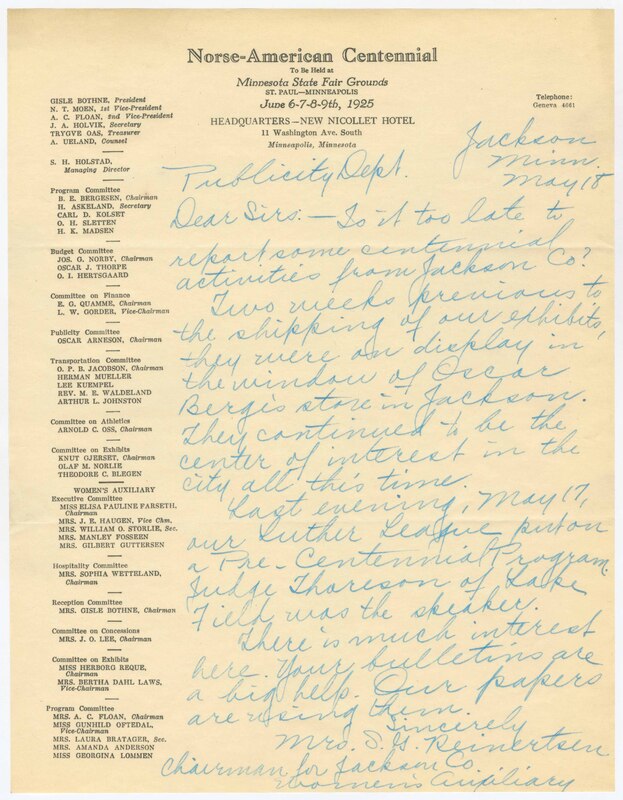 Norse-American Centennial
To Be Held at
Minnesota State Fair Grounds
ST. PAUL—MINNEAPOLIS
June 6-7-8-9th, 1925
HEADQUARTERS—NEW NICOLLET HOTEL
11 Washington Ave. South
Minneapolis, Minnesota
Telephone:
Geneva 4661
GISLE BOTHNE, President
N. T. MOEN, 1st Vice-President
A. C. FLOAN, 2nd Vice-President
J. A. HOLVIK, Secretary
TRYGVE OAS, Treasurer
A. UELAND, Counsel
S. H. HOLSTAD,
Managing Director
Program Committee
B. E. BERGESEN, Chairman
H. ASKELAND, Secretary
CARL D. KOLSET
O. H. SLETTEN
H. K. MADSEN
Budget Committee
JOS. G. NORBY, Chairman
OSCAR J. THORPE
O. I. HERTSGAARD
Committee on Finance
E. G. QUAMME, Chairman
L. W. GORDER, Vice-Chairman
Publicity Committee
OSCAR ARNESON, Chairman
Transportation Committee
O. P. B. JACOBSON, Chairman
HERMAN MUELLER
LEE KUEMPEL
REV. M. E. WALDELAND
ARTHUR L. JOHNSTON
Committee on Athletics
ARNOLD C. OSS, Chairman
Committee on Exhibits
KNUT GJERSET, Chairman
OLAF M. NORLIE
THEODORE C. BLEGEN
WOMEN'S AUXILIARY
Executive Committee
MISS ELISA PAULINE FARSETH,
Chairman
MRS. J. E. HAUGEN, Vice Chm.
MRS. WILLIAM O. STORLIE, Sec.
MRS. MANLEY FOSSEEN
MRS. GILBERT GUTTERSEN
Hospitality Committee
MRS. SOPHIA WETTELAND,
Chairman
Reception Committee
MRS. GISLE BOTHNE, Chairman
Committee on Concessions
MRS. J. O. LEE, Chairman
Committee on Exhibits
MISS HERBORG REQUE,
Chairman
MRS. BERTHA DAHL LAWS,
Vice-Chairman
Program Committee
MRS. A. C. FLOAN, Chairman
MISS GUNHILD OFTEDAL,
Vice-Chairman
MRS. LAURA BRATAGER, Sec.
MRS. AMANDA ANDERSON
MISS GEORGINA LOMMEN
Jackson
Minn.
May 18
Publicity Dept.
Dear Sirs:— Is it too late to
report some centennial
activities from Jackson Co?
Two weeks previous to
the shipping of our exhibits,
they were on display in
the window of Oscar
Berge's store in Jackson.
They continued to be the
center of interest in the
city all this time.
Last evening, May 17,
our Luther League put on
a Pre-Centennial Program.
Judge Thoreson of Lake
Field was the speaker.
There is much interest
here. Your bulletins are
a big help. Our papers
are using them.
Sincerely
Mrs. S. G. Reinertsen
Chairman for Jackson Co.
Women's Auxiliary